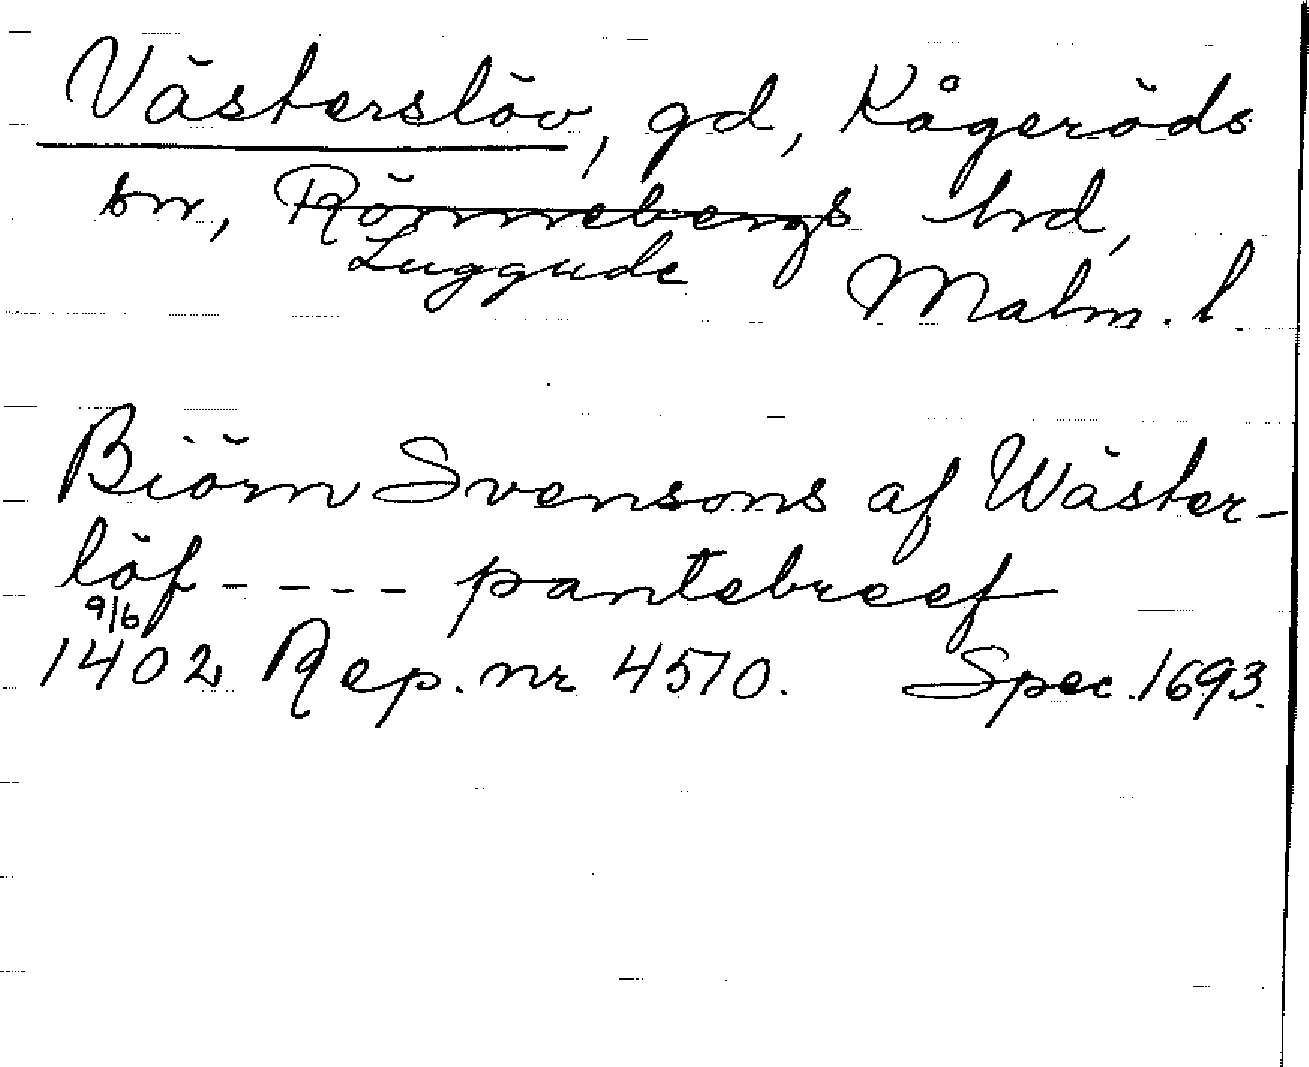 Västerslöv, gd, Kågeröds
sn, Rönnebergs hrd,
Luggude Malm. l.
Biörn Svensons af Wäster-
löf - - - - pantebreef
9/6
1402 Rep. nr 4510. Spec. 1693.